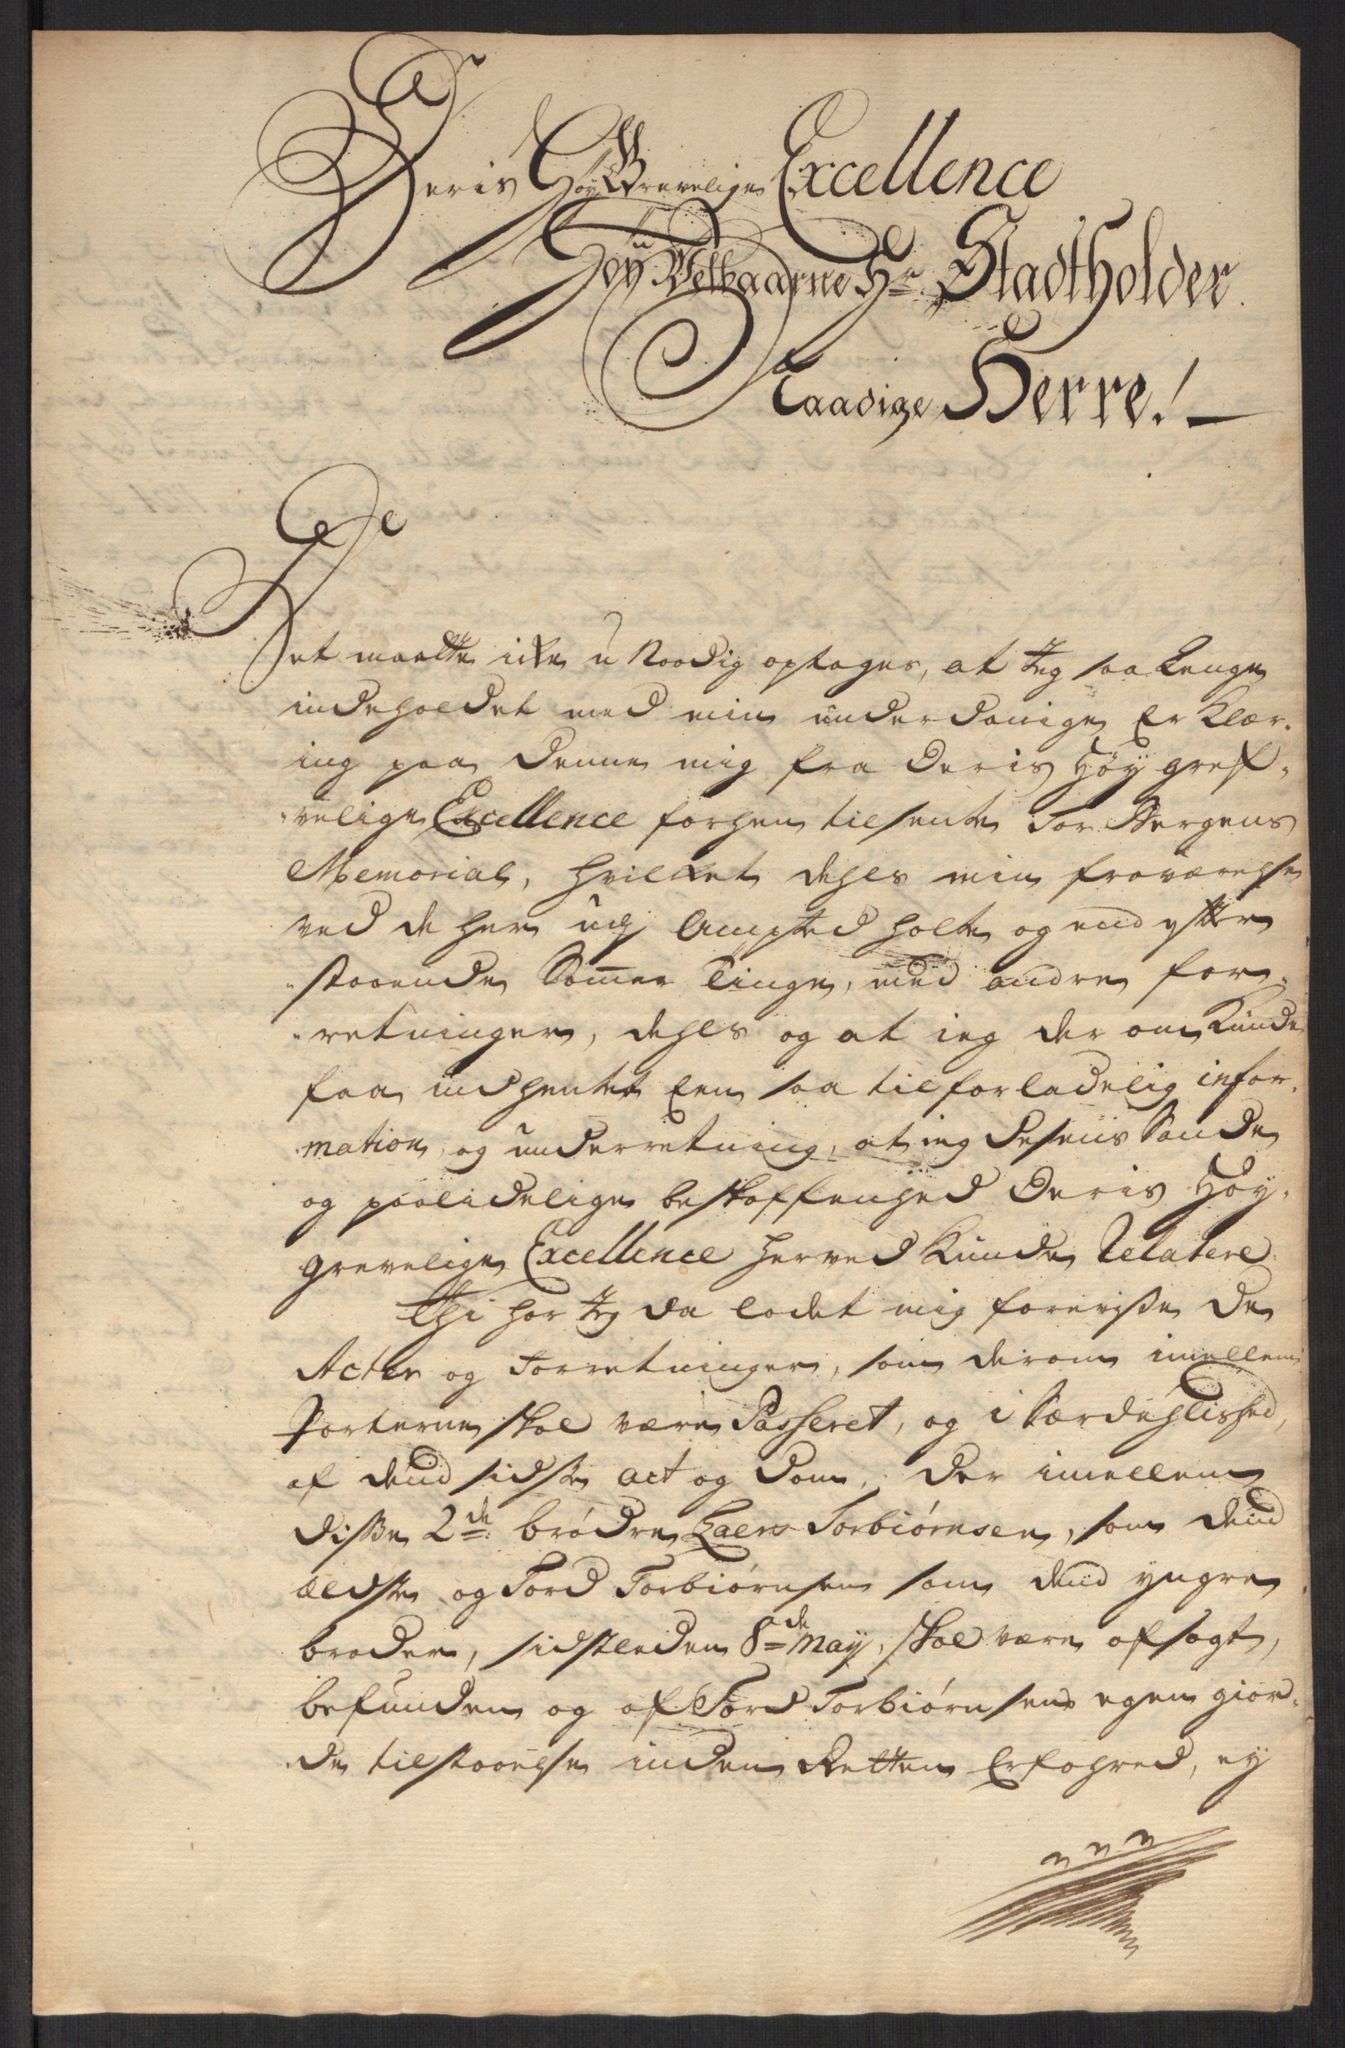 Deris Høy Grevelige Excellence
Høy Velbaarne Hr Stadtholder
Naadige Herre!
Det maatte iche u Naadig optages, at Jeg saa Lenge
indeholdet med min underdanige Er Klær-
ing paa denne mig fra Deris Høy gref-
velige Excellence forhen tilsente Tor Bergens
Memorial, hvilket dehls min fraværelse
ved de her udj Ampted holte og end ytter
staaende Sommer Tinge, med andre for-
retninger, dehls og at ieg der om Kunde
faa indhentet Een saa tilforladelig infor-
mation og underretning, at ieg desens Sande
og paalidelige beskaffenhed Deris Høy-
grevelige Excellence herved Kunde Relatere
Thi har Jeg da ladet mig forevisse de
Acter og Forretninger, som derom imellem
Parterne skal være Passeret, og i Særdehlished,
af dend sidste act og dom, der imellem
disse 2de brødre Laers Torbiørnsen, som dend
ældste og Tord Torbiørnsen som dend yngre
broder, sidstleden 8de May, skal være afsagt,
befunden og af Tord Torbiørnsens egen gior-
de tilstaaelse inden Retten Erfahred, ey